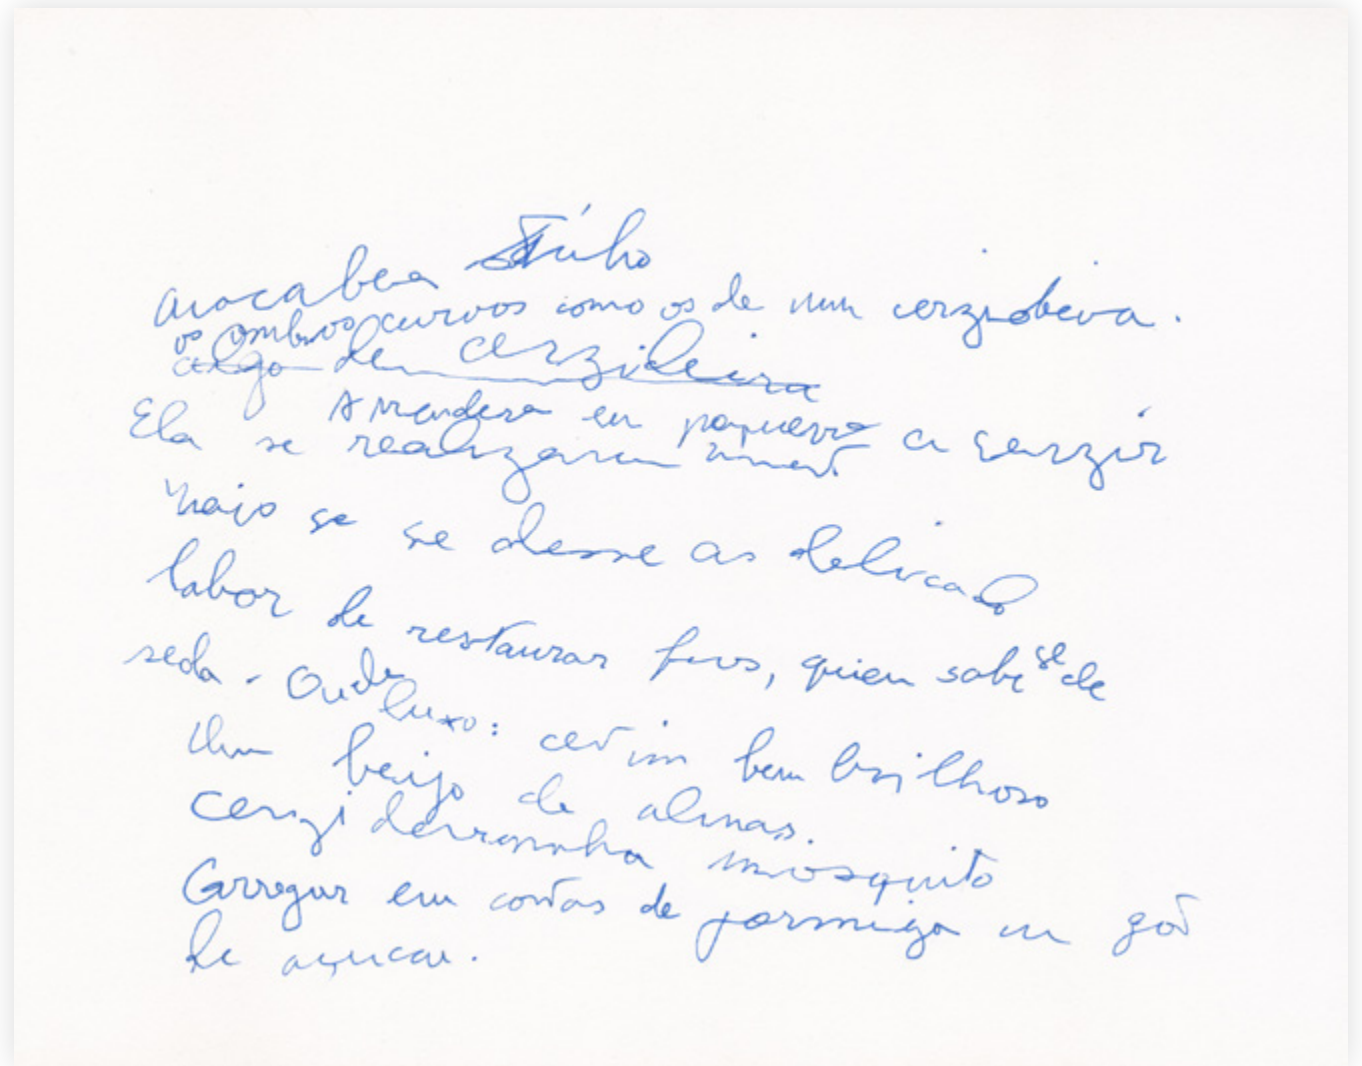 Macabéa tinha
os ombros curvos como os de um cerzideira.
algo de cerzideira
Aprendera em pequena a serzir
Ela se realizaria
mais se se desse ao delicado
labor de restaurar fios, quem sabe se de
seda. Ou de luxo: cetim bem brilhoso
Um beijo de almas.
Cerzideirinha mosquito
Carregar em costas de formiga um grão
de açucar.